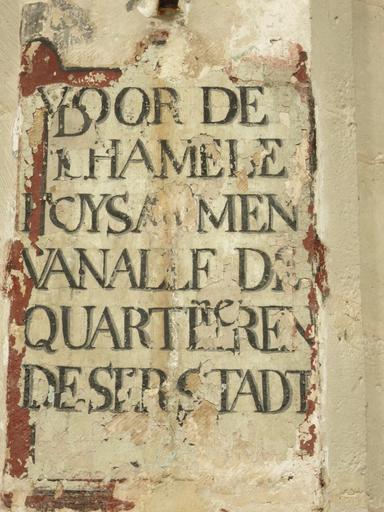 VOOR DE
SCHAMELE
HUYSARMEN
VANALLE DE
QUARTIEREN
DESER STADT